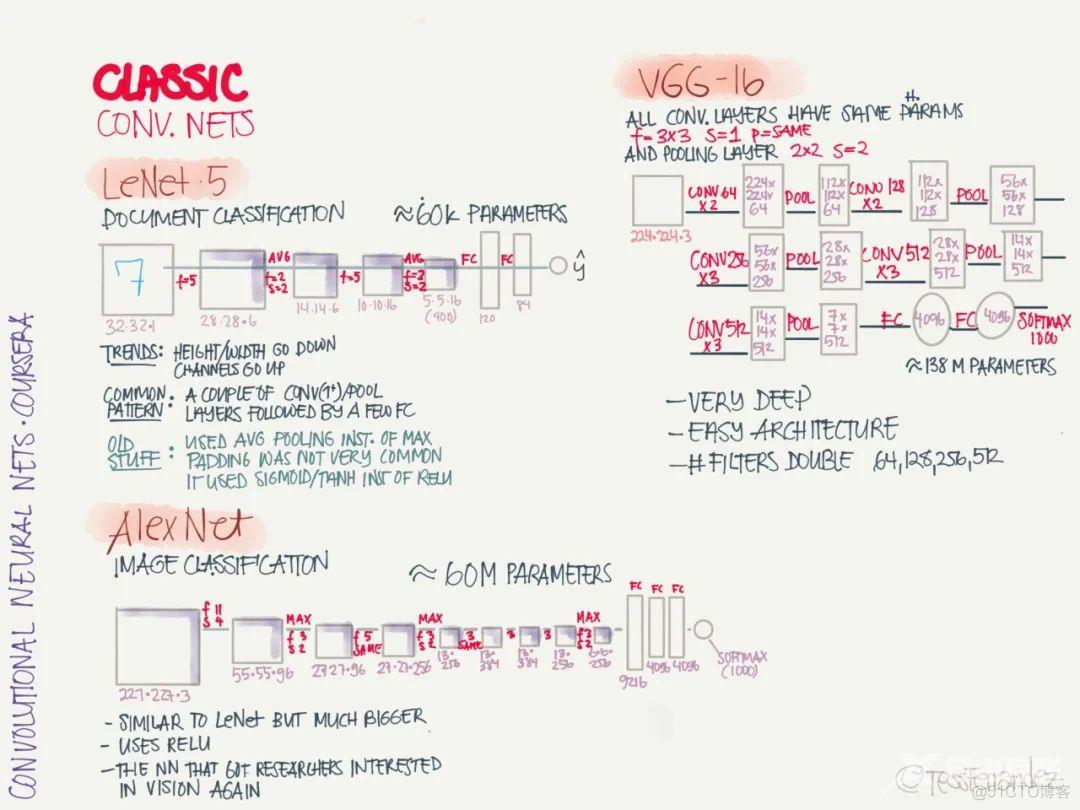 CLASSIC
CONV. NETS
LeNet·5
DOCUMENT CLASSIFICATION ≈60K PARAMETERS
7 f=5 AVG f=2 s=2 f=5 AVG f=2 s=2 FC FC ŷ
32·32·1 28·28·6 14·14·6 10·10·16 5·5·16 (400) 120 84
TRENDS: HEIGHT/WIDTH GO DOWN
CHANNELS GO UP
COMMON PATTERN: A COUPLE OF CONV(1+)/POOL
LAYERS FOLLOWED BY A FEW FC
OLD STUFF: USED AVG POOLING INST. OF MAX
PADDING WAS NOT VERY COMMON
IT USED SIGMOID/TANH INST OF RELU
AlexNet
IMAGE CLASSIFICATION ≈ 60M PARAMETERS
f 11 s 4 MAX f 3 s 2 f 5 SAME MAX f 3 s 2 3 SAME 3 3 MAX f 3 s 2 FC FC FC
227·227·3 55·55·96 27·27·96 27·27·256 13· 256 13· 384 13· 384 13· 256 6·6· 256 9216 4096 4096 SOFTMAX (1000)
- SIMILAR TO LeNet BUT MUCH BIGGER
- USES RELU
- THE NN THAT GOT RESEARCHERS INTERESTED
IN VISION AGAIN
VGG-16
#.
ALL CONV. LAYERS HAVE SAME PARAMS
f=3×3 S=1 P=SAME
AND POOLING LAYER 2×2 S=2
CONV 64 ×2 224× 224× 64 POOL 112× 112× 64 CONV 128 ×2 112× 112× 128 POOL 56× 56× 128
224·224·3
CONV 256 ×3 56× 56× 256 POOL 28× 28× 256 CONV 512 ×3 28× 28× 512 POOL 14× 14× 512
CONV 512 ×3 14× 14× 512 POOL 7× 7× 512 FC 4096 FC 4096 SOFTMAX 1000
≈138 M PARAMETERS
-VERY DEEP
-EASY ARCHITECTURE
-# FILTERS DOUBLE 64,128,256,512
CONVOLUTIONAL NEURAL NETS · COURSERA
@TessFernandez
@51CTO博客